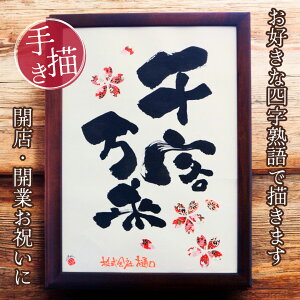 お好きな四字熟語で描きます
手描き
千客
万来
株式会社 樋口
開店・開業お祝いに